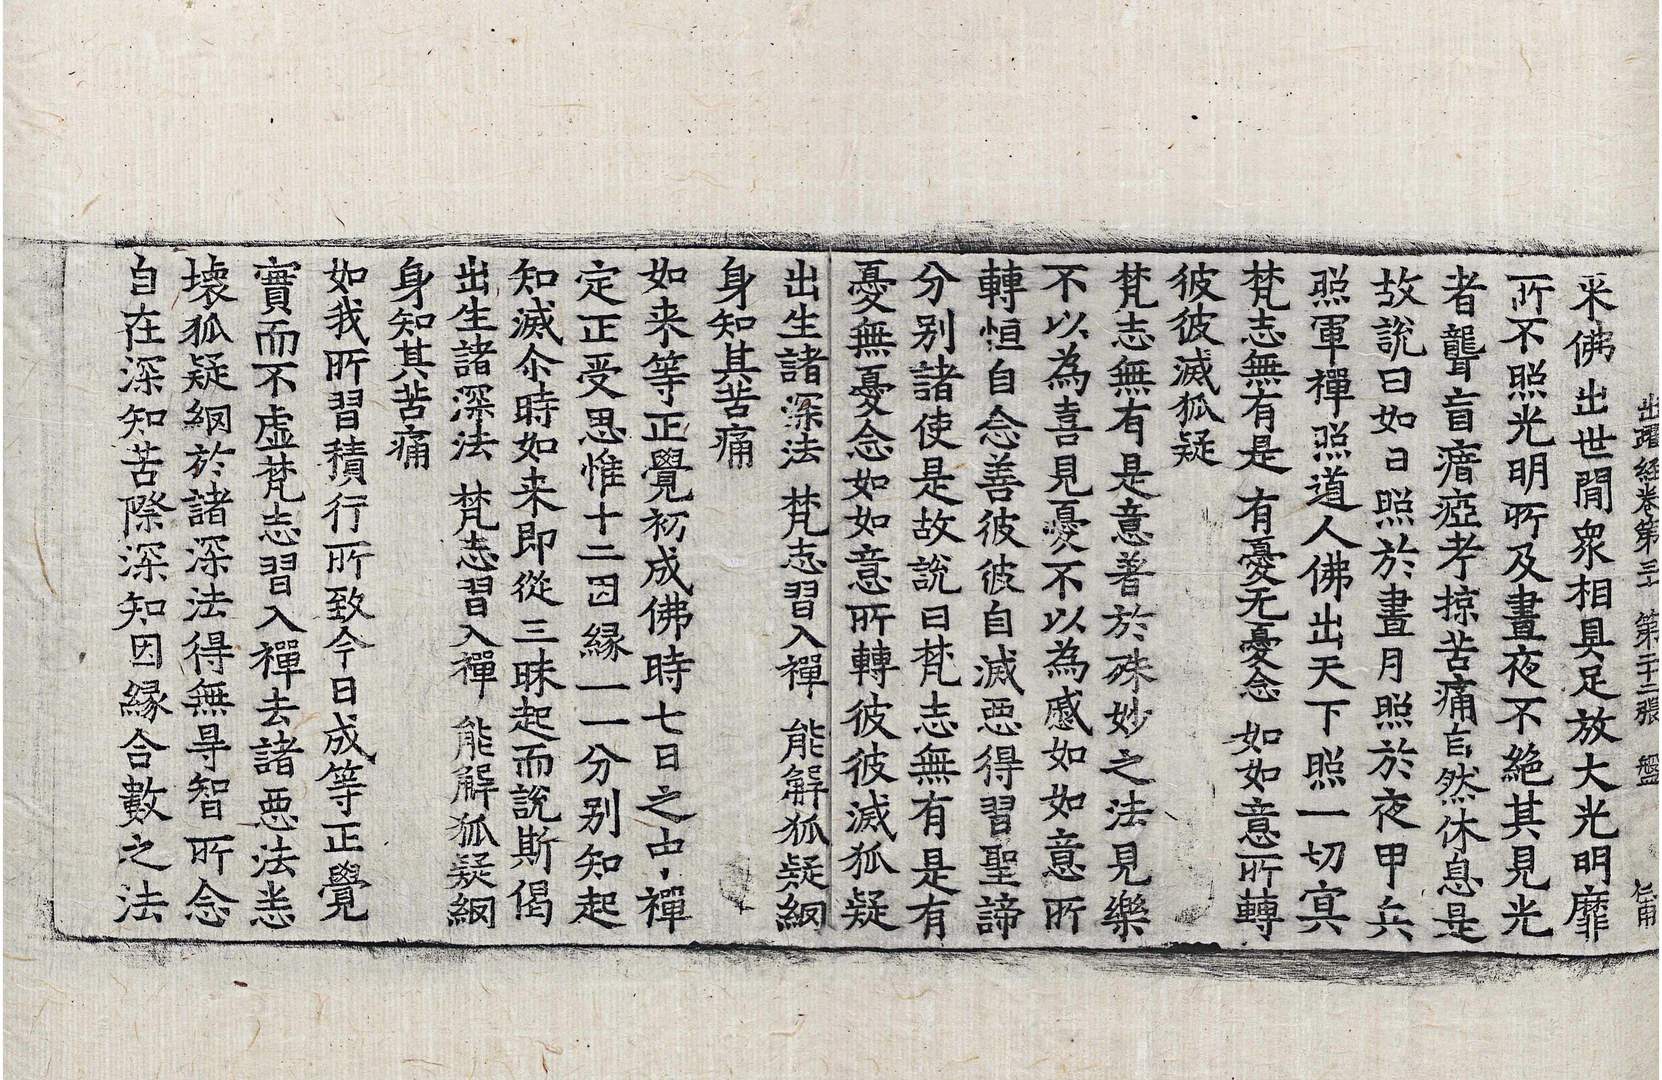 出曜經卷第三十 第二十二張 盤
来佛出世閒衆相具足放大光明靡
所不照光明所及晝夜不絶其見光
者聾盲瘖瘂考掠苦痛自然休息是
故說曰如日照於晝月照於夜甲兵
照軍禪照道人佛出天下照一切冥
梵志無有是 有憂无憂念 如如意所轉
彼彼滅狐疑
梵志無有是意著於殊妙之法見樂
不以為喜見憂不以為慼如如意所
轉恒自念善彼彼自滅惡得習聖諦
分別諸使是故說曰梵志無有是有
憂無憂念如如意所轉彼彼滅狐疑
出生諸深法 梵志習入禪 能解狐疑網
身知其苦痛
如来等正覺初成佛時七日之中禪
定正受思惟十二因緣一一分別知起
知滅尒時如来即從三昧起而說斯偈
出生諸深法 梵志習入禪 能解狐疑網
身知其苦痛
如我所習積行所致今日成等正覺
實而不虛梵志習入禪去諸惡法恙
壞狐疑網於諸深法得無㝵智所念
自在深知苦際深知因緣合數之法